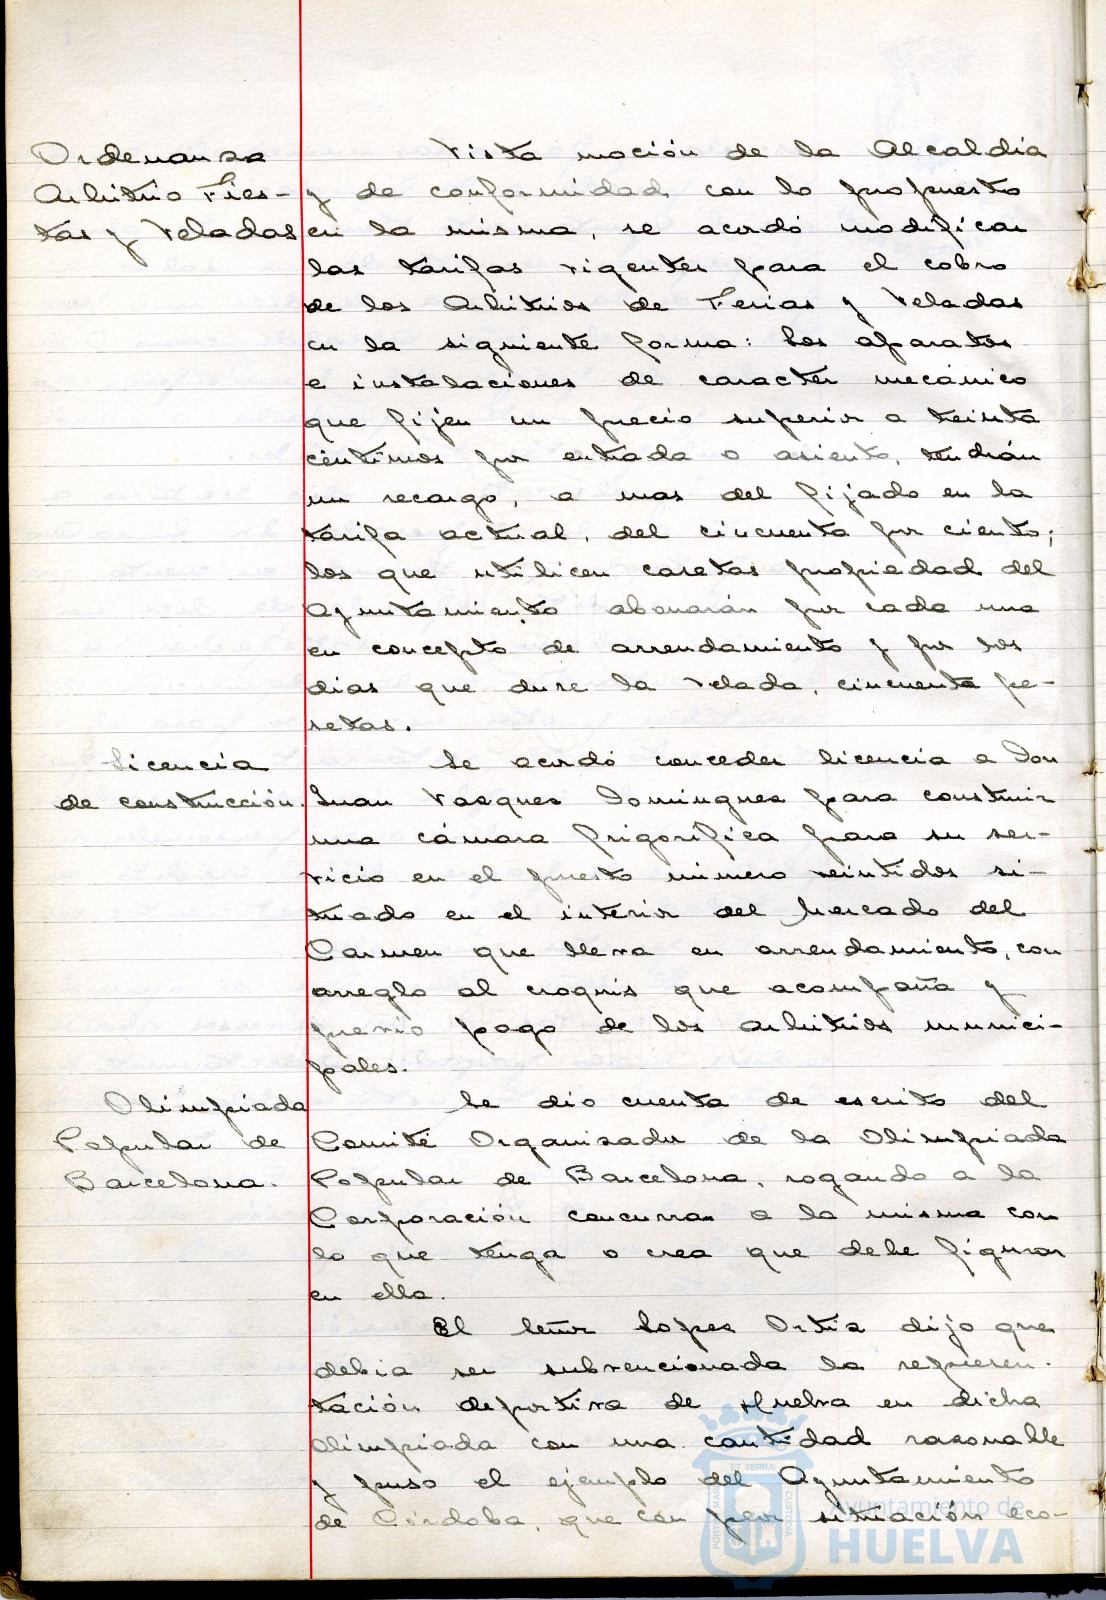 Ordenanza
Arbitrio Fies-
tas y Veladas
Vista moción de la Alcaldía
y de conformidad con lo propuesto
en la misma, se acordó modificar
las tarifas vigentes para el cobro
de los Arbitrios de Ferias y Veladas
en la siguiente forma: Los aparatos
e instalaciones de caracter mecánico
que fijen un precio superior a treinta
céntimos por entrada o asiento, tendrán
un recargo, a mas del fijado en la
tarifa actual, del cincuenta por ciento;
los que utilicen casetas propiedad del
Ayuntamiento abonarán por cada una
en concepto de arrendamiento y por los
dias que dure la Velada, cincuenta pe-
setas.
Licencia
de construcción.
Se acordó conceder licencia a Don
Juan Vazquez Dominguez para construir
una cámara frigorífica para su ser-
vicio en el puesto número veintidos si-
tuado en el interior del Mercado del
Carmen que lleva en arrendamiento, con
arreglo al croquis que acompaña y
previo pago de los arbitrios munici-
pales.
Olimpiada
Popular de
Barcelona.
Se dio cuenta de escrito del
Comité Organizador de la Olimpiada
Popular de Barcelona, rogando a la
Corporación concurra a la misma con
lo que tenga o crea que debe figurar
en ella.
El Señor Lopez Ortiz dijo que
debia ser subvencionada la represen-
tación deportiva de Huelva en dicha
Olimpiada con una cantidad razonable
y puso el ejemplo del Ayuntamiento
de Córdoba, que con peor situación eco-
PORTUS MARIS
ET TERRAE
CUSTODIA
Ayuntamiento de
HUELVA